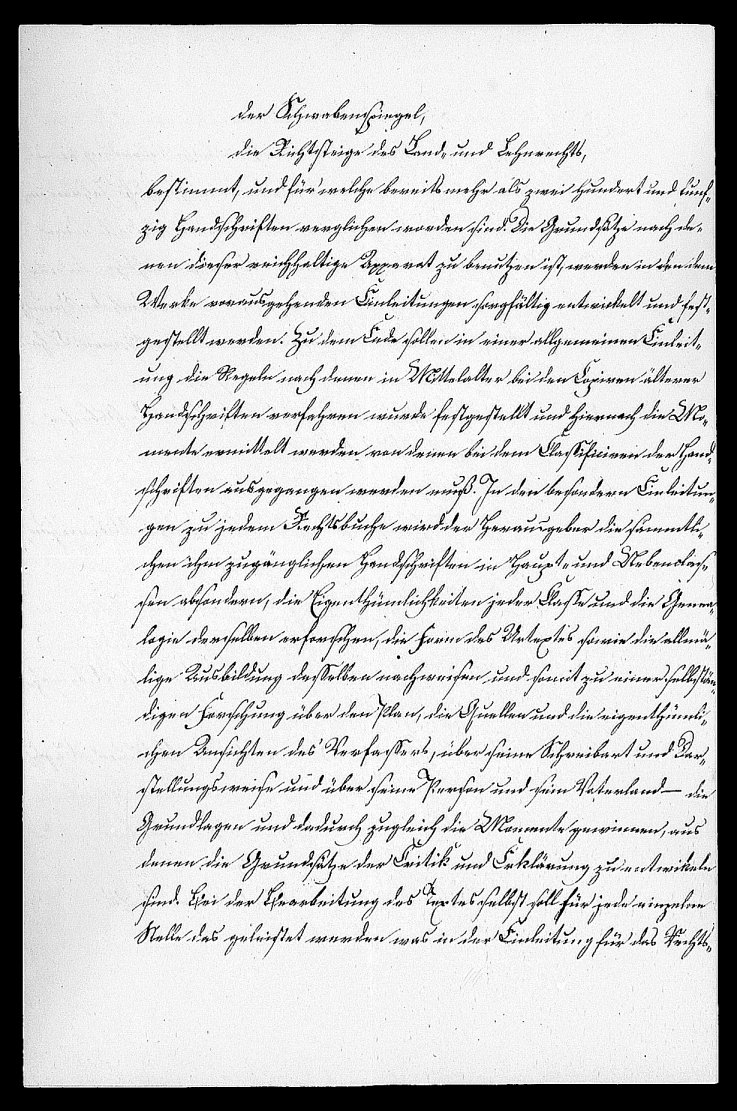 der Schwabenspiegel,
die Richtsteige des Land- und Lehnrechts,
bestimmt, und für welche bereits mehr als zwei hundert und funf-
zig Handschriften verglichen worden sind. Die Grundsätze nach de-
nen dieser reichhaltige Apparat zu benutzen ist, werden in den dem
Werke vorausgehenden Einleitungen sorgfältig entwickelt und fest-
gestellt werden. Zu dem Ende sollen in einer allgemeinen Einleit-
ung die Regeln nach denen in Mittelalter bei den Copiren älterer
Handschriften verfahren wurde festgestellt und hiernach die Mo-
mente ermittelt werden von denen bei dem Classificiren der Hand-
schriften ausgegangen werden muß. In den besondern Einleitun-
gen zu jedem Rechtsbuche wird der Herausgeber die sammtli-
chen ihm zugänglichen Handschriften in Haupt- und Nebenclas-
sen absondern, die Eigenthümlichkeiten jeder Klasse und die Genea-
logie derselben erforschen, die Form des Urtextes sowie die allmä-
lige Ausbildung desselben nachweisen, und somit zu einer selbstän-
digen Forschung über den Plan, die Quellen und die eigenthümli-
chen Ansichten des Verfassers, über seine Schreibart und Dar-
stellungsweise und über seine Person und sein Vaterland – die
Grundlagen und dadurch zugleich die Momente gewinnen, aus
denen die Grundsätze der Critik und Erklärung zu entwickeln
sind. Bei der Bearbeitung des Textes selbst soll für jede einzelne
Stelle das geleistet werden was in der Einleitung für das Rechts-